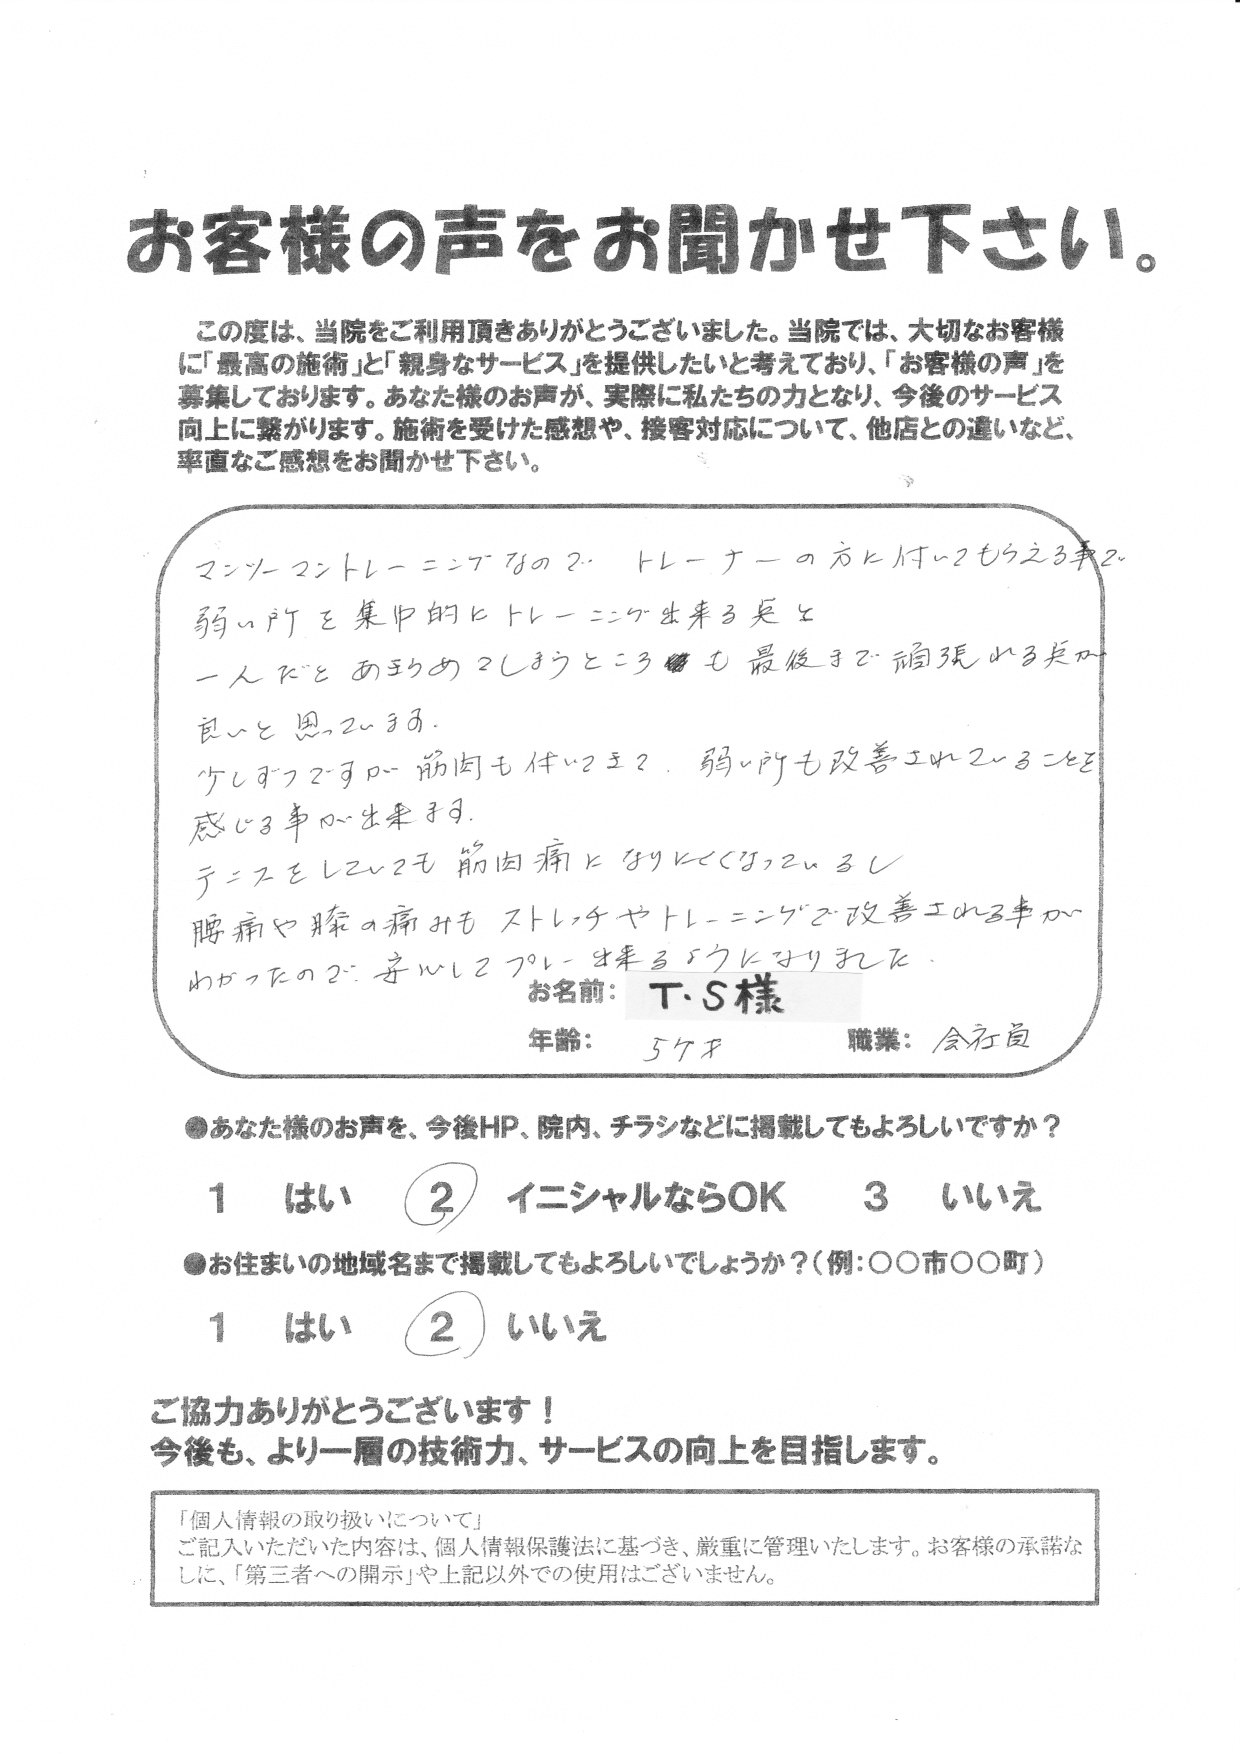 お客様の声をお聞かせ下さい。
この度は、当院をご利用頂きありがとうございました。当院では、大切なお客様
に「最高の施術」と「親身なサービス」を提供したいと考えており、「お客様の声」を
募集しております。あなた様のお声が、実際に私たちの力となり、今後のサービス
向上に繋がります。施術を受けた感想や、接客対応について、他店との違いなど、
率直なご感想をお聞かせ下さい。
マンツーマントレーニングなので トレーナーの方に付いてもらえる事で
弱い所を集中的にトレーニング出来る点と
一人だとあきらめてしまうところも最後まで頑張れる点が
良いと思っています。
少しずつですが筋肉も付いてきて、弱い所も改善されていることを
感じる事が出来ます。
テニスをしていても筋肉痛になりにくくなっているし
腰痛や膝の痛みもストレッチやトレーニングで改善される事が
わかったので、安心してプレー出来るようになりました。
お名前： T・S様
年齢： 5ケ才 職業： 会社員
●あなた様のお声を、今後HP、院内、チラシなどに掲載してもよろしいですか？
1 はい 2 イニシャルならOK 3 いいえ
●お住まいの地域名まで掲載してもよろしいでしょうか？（例：〇〇市〇〇町）
1 はい 2 いいえ
ご協力ありがとうございます！
今後も、より一層の技術力、サービスの向上を目指します。
「個人情報の取り扱いについて」
ご記入いただいた内容は、個人情報保護法に基づき、厳重に管理いたします。お客様の承諾な
しに、「第三者への開示」や上記以外での使用はございません。